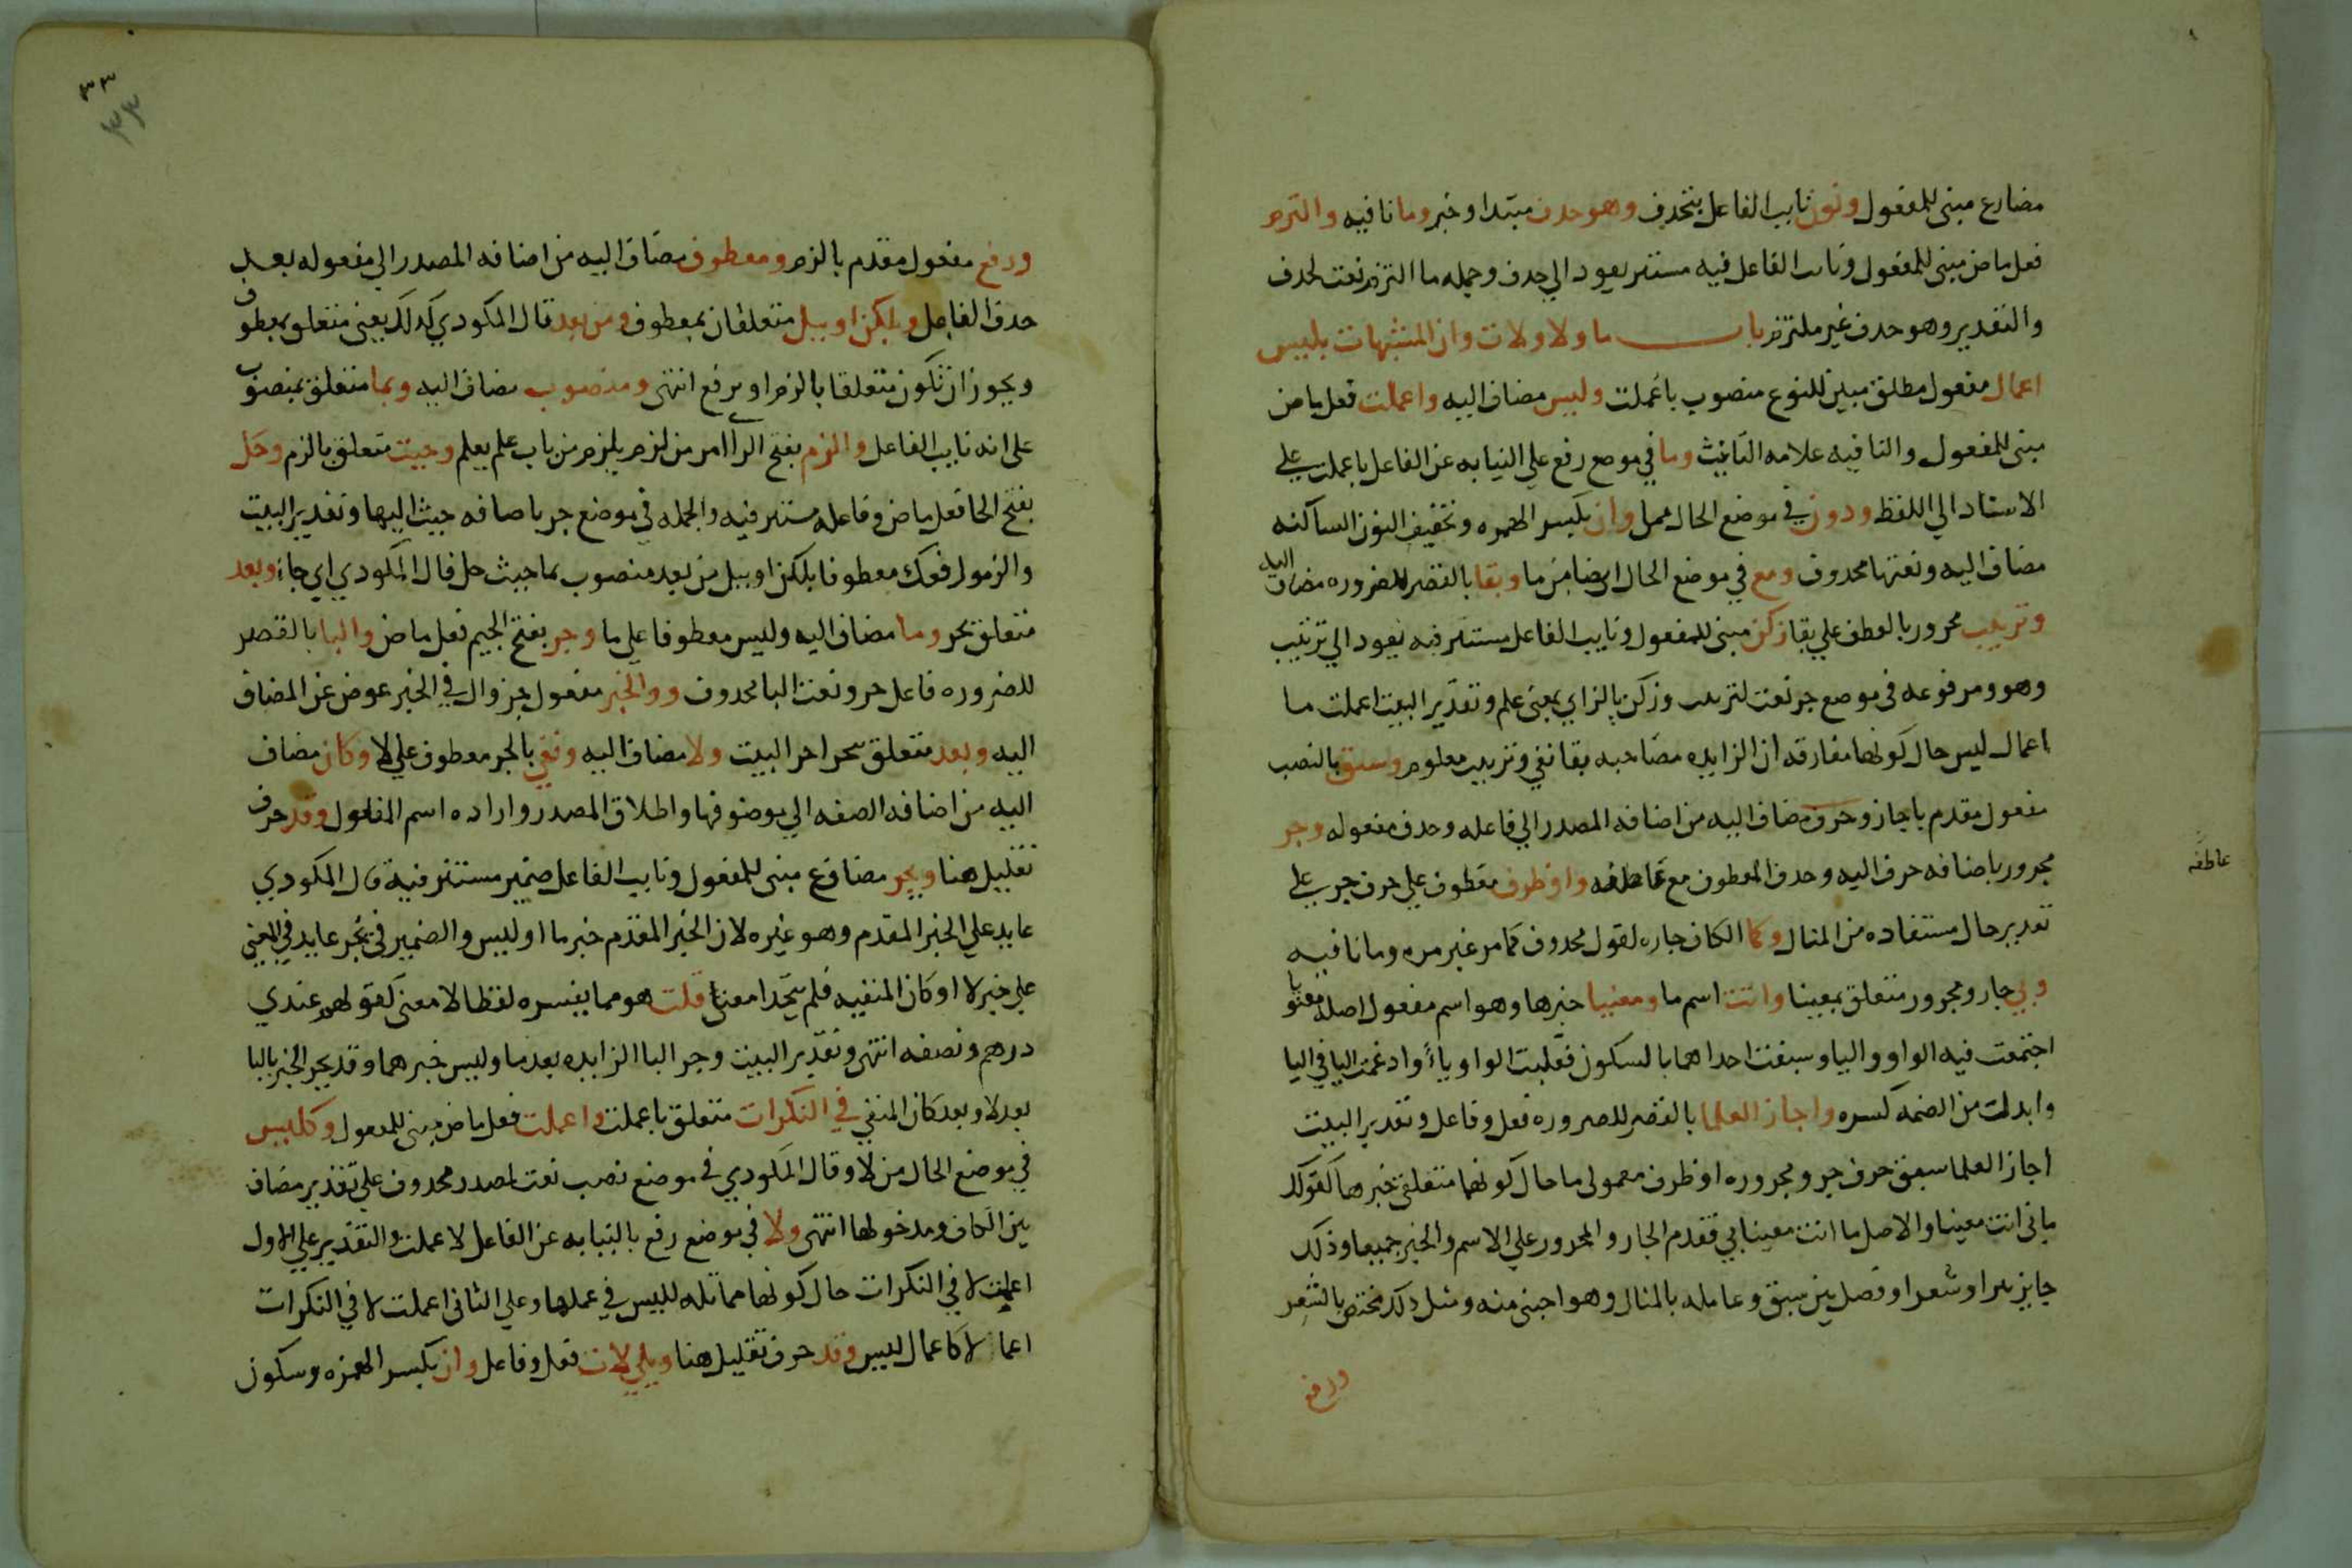 مضارع مبنى للمفعول ونون نايب الفاعل بتحذف وهو حدف مبتدا وخبر وما نافيه والتزم
فعل ماض مبنى للمفعول ونايب الفاعل فيه مستتر يعود الي حدف وجمله ما التزم نعت لحدف
والتقدير وهو حدف غير ملتزم باب ما ولا ولات وان المشبهات بليس
اعمال مفعول مطلق مبين للنوع منصوب باعملت وليس مضاف اليه واعملت فعل ماض
مبنى للمفعول والتا فيه علامه التانيث وما في موضع رفع علي النيابه عن الفاعل باعملت علي
الاسناد الي اللفظ ودون في موضع الحال من ما وان بكسر الهمزه وتخفيف النون الساكنه
مضاف اليه ونعتها محدوف ومع في موضع الحال ايضا من ما وبقا بالقصر للضروره مضاف اليه
وترتيب مجرور بالعطف علي بقا زكن مبنى للمفعول ونايب الفاعل مستتر فيه يعود الي ترتيب
وهو ومرفوعه في موضع جر نعت لترتيب وزكن بالزاي بمعنى علم وتقدير البيت اعملت ما
اعمال ليس حال كونها مفارقه ان الزايده مصاحبه بقا نفي وترتيب معلوم وسبق بالنصب
مفعول مقدم باجاز وحرف مضاف اليه من اضافه المصدر الي فاعله وحدف مفعوله وجر
مجرور باضافه حرف اليه وحدف المعطوف مع عاطفه واو ظرف معطوف علي حرف جر علي
عاطفه
تقدير حال مستفاده من المثال وكما الكاف جاره لقول محدوف كما مر غير مره وما نافيه
وبي جار ومجرور متعلق بمعينا وانت اسم ما ومعنيا خبرها وهو اسم مفعول اصله معنويا
اجتمعت فيه الواو واليا وسبقت احداهما بالسكون فقلبت الواو ياً وادغمت اليا في اليا
وابدلت من الضمه كسره واجاز العلما بالقصر للضروره فعل وفاعل وتقدير البيت
اجاز العلما سبق حرف جر ومجروره او ظرف معمولى ما حال كونهما متعلقى خبرها كقولك
ما بى انت معينا والاصل ما انت معينا بي فقدم الجار والمجرور علي الاسم والخبر جميعا وذلك
جايز نثرا وشعرا وفصل بين سبق وعامله بالمثال وهو اجنبى منه ومثل ذلك مختص بالشعر
ورفع
٣٣
٣٣
ورفع مفعول مقدم بالزم ومعطوف مضاف اليه من اضافه المصدر الي مفعوله بعد
حدف الفاعل وبلكن او ببل متعلقان بمعطوف ومن بعد قال المكودي كدلك يعنى متعلق بمعطوف
ويجوز ان تكون متعلقا بالزم او برفع انتهى ومنصوب مضاف اليه وبما متعلق بمنصوب
على انه نايب الفاعل والزم بفتح الراا امر من لزم يلزم من باب علم يعلم وحيث متعلق بالزم وحل
بفتح الحا فعل ماض وفاعله مستتر فيه والجمله في موضع جر باضافه حيث اليها وتقدير البيت
والزم رفعك معطوفا بلكن او ببل من بعد منصوب بما حيث حل قال المكودي اي جاء وبعد
متعلق بجر وما مضاف اليه وليس معطوفا علي ما وجر بفتح الجيم فعل ماض والبا بالقصر
للضروره فاعل جر ونعت البا محدوف ووالخبر مفعول جر وال في الخبر عوض عن المضاف
اليه وبعد متعلق بيجر اخر البيت ولا مضاف اليه ونفي بالجر معطوف علي لا وكان مضاف
اليه من اضافه الصفه الي موصوفها واطلاق المصدر واراده اسم المفعول وقد حرف
تقليل هنا ويجر مضارع مبنى للمفعول ونايب الفاعل ضمير مستتر فيه قال المكودي
عايد علي الخبر المقدم وهو غيره لان الخبر المقدم خبر ما او ليس والضمير في يجر عايد في المعنى
علي خبر لا او كان المنفيه فلم يتحدا معنا قلت هو مما يفسره لفظا لا معنى كقولهم عندي
درهم ونصفه انتهى وتقدير البيت وجر البا الزايده بعد ما وليس خبرهما وقد يجر الخبر بالبا
بعد لا وبعد كان المنفي في النكرات متعلق باعملت واعملت فعل ماض مبنى للمفعول وكليس
في موضع الحال من لا وقال المكودي في موضع نصب نعت لمصدر محدوف علي تقدير مضاف
بين الكاف ومدخولها انتهى ولا في موضع رفع بالنيابه عن الفاعل لاعملت والتقدير علي الاول
اعملت لا في النكرات حال كونها مماثله لليس في عملها وعلي الثانى اعملت لا في النكرات
اعمالا كاعمال ليس وقد حرف تقليل هنا ويلي لات فعل وفاعل وان بكسر الهمزه وسكون